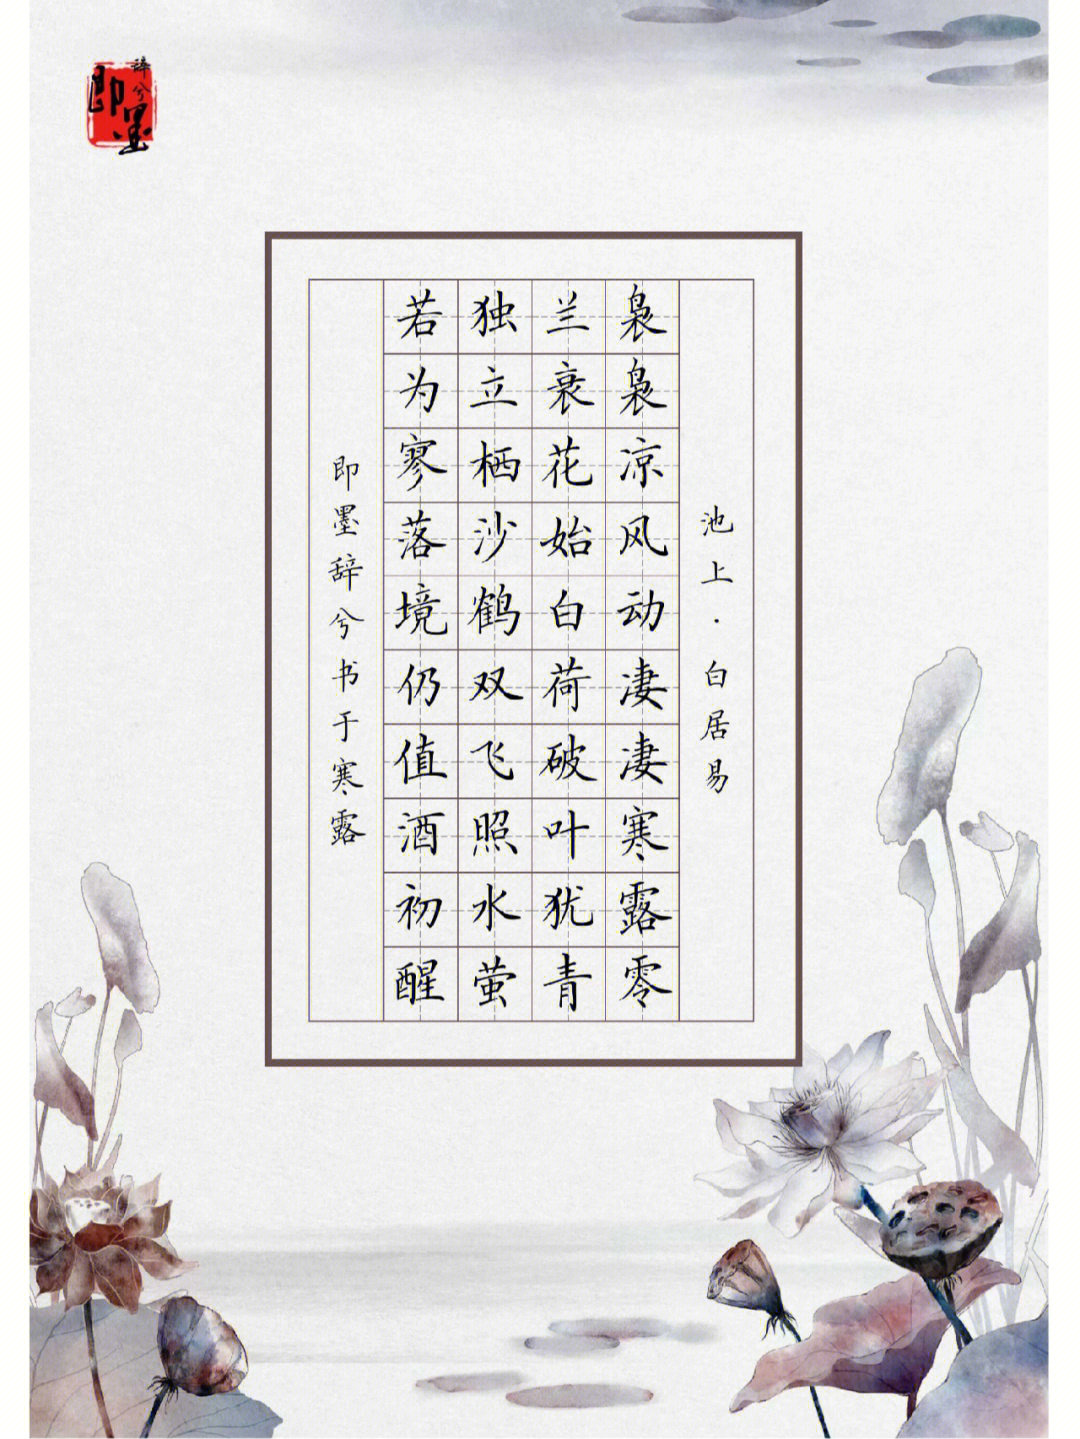 辞兮
即墨
池上·白居易
袅袅凉风动凄凄寒露零
兰衰花始白荷破叶犹青
独立栖沙鹤双飞照水萤
若为寥落境仍值酒初醒
即墨辞兮书于寒露